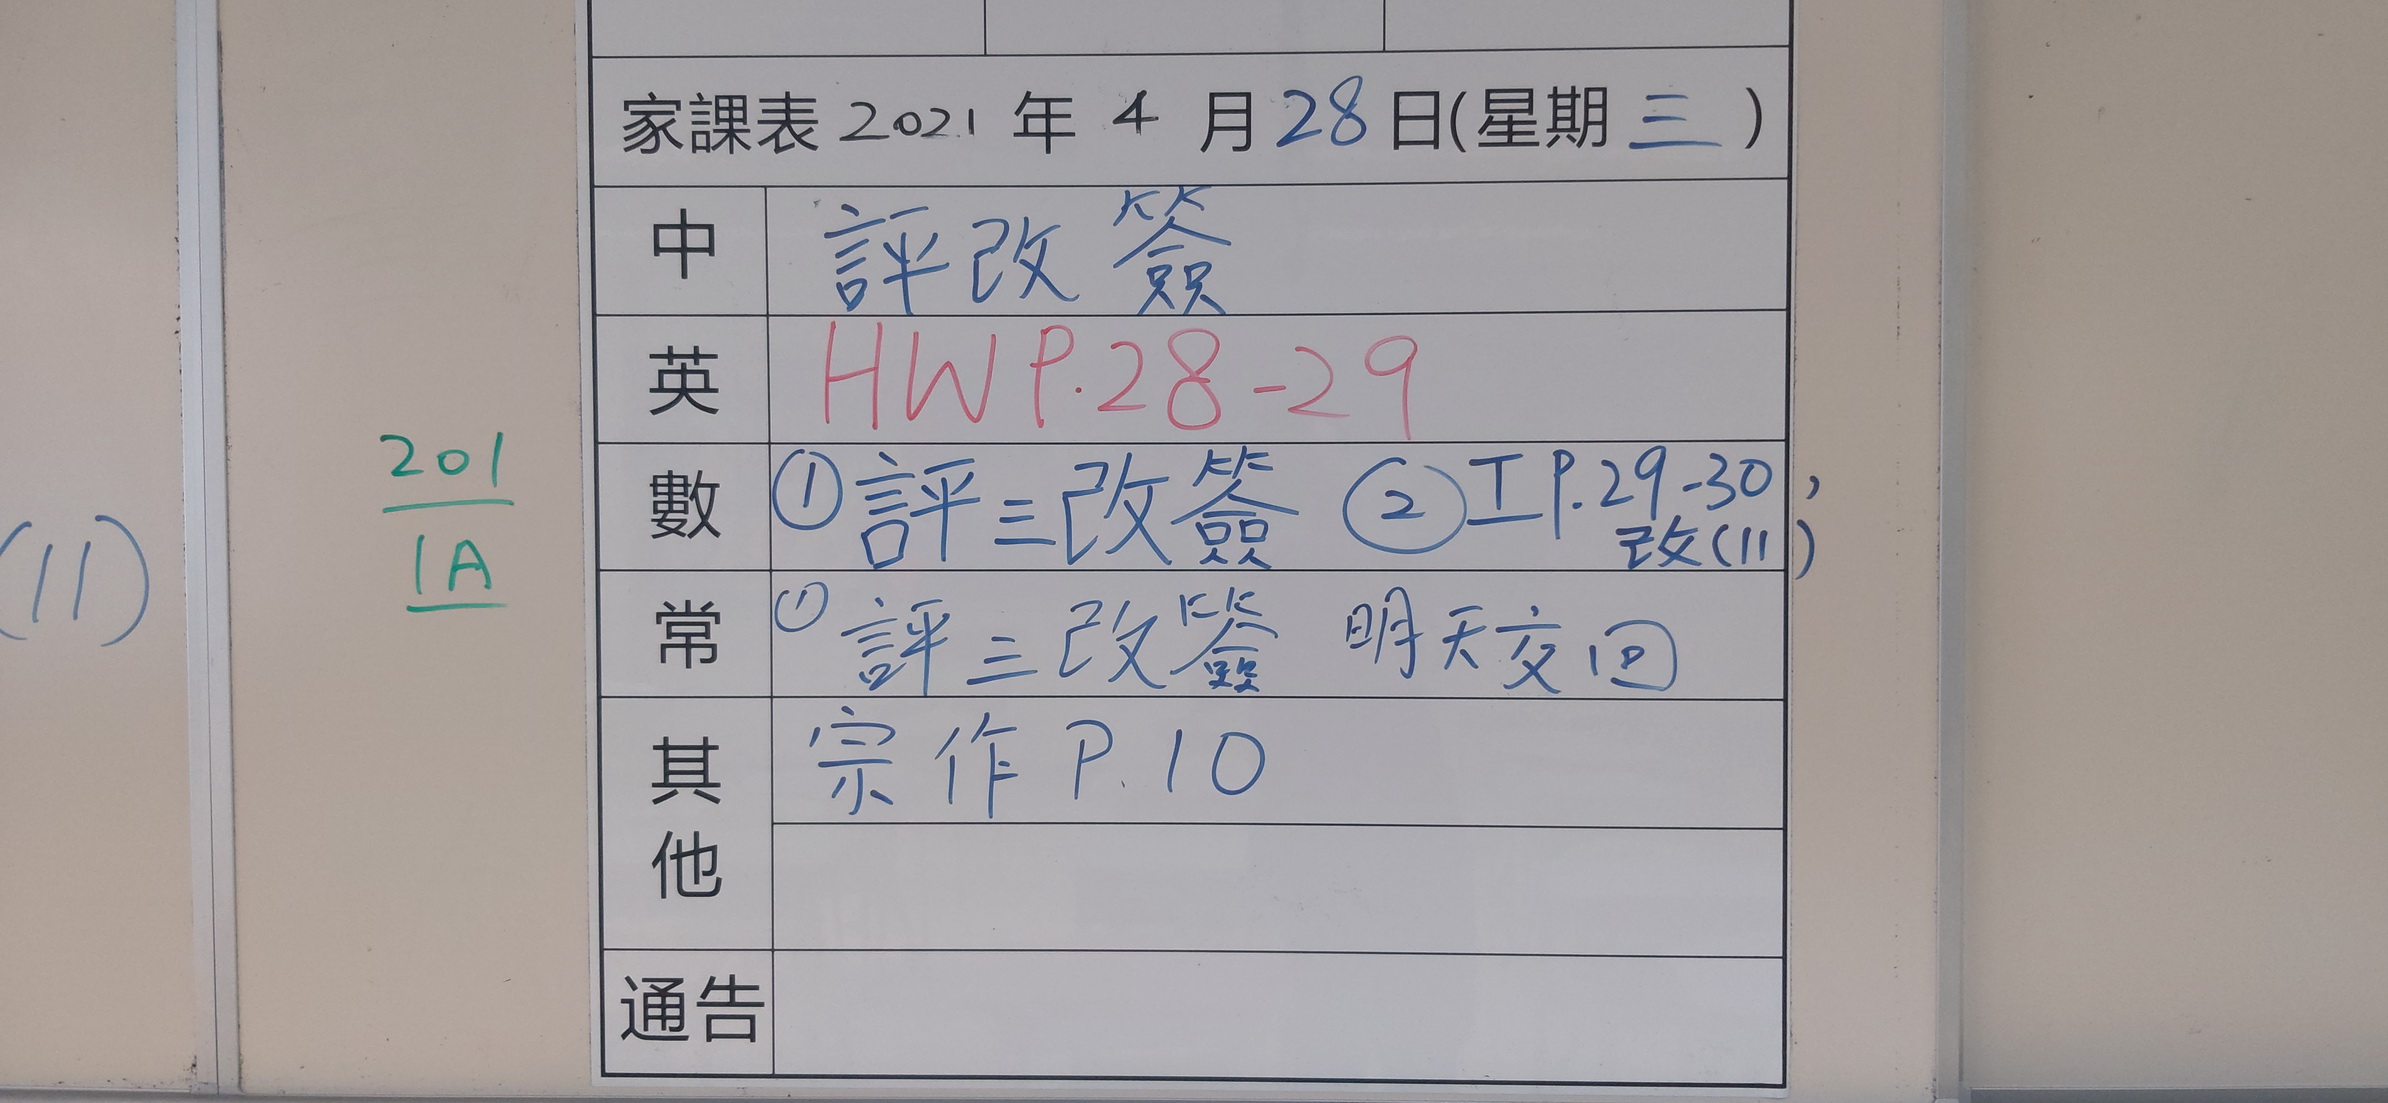 家課表 2021 年 4 月 28 日(星期 三 )
中 評改簽
英 HW P.28-29
數 ①評三改簽 ②工P.29-30,
改(11)
常 ①評三改簽 明天交回
其他 宗作 P.10
通告
201
1A
(11)